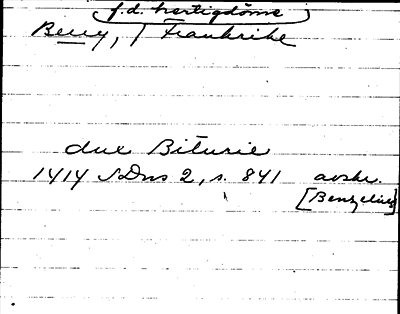 f.d. hertigdöme
Berry, i Frankrike
dux Biturie
1414 SDns 2, s. 841 avskr.
[Benzelius]